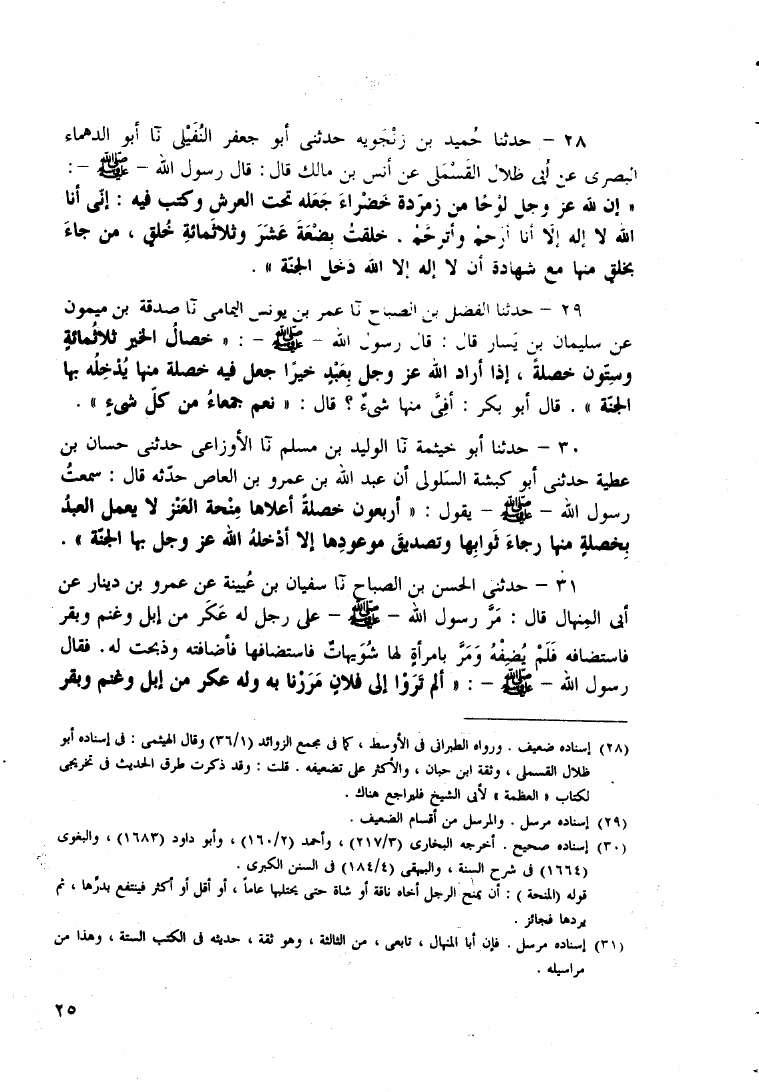 ٢٨ – حدثنا حُميد بن زنْجَويه حدثنى أبو جعفر النُفَيْلى نَا أبو الدهماء
البصرى عن أبى ظلال القَسْمَلى عن أنس بن مالك قال : قال رسول الله – ﷺ – :
« إن لله عز وجل لوْحًا من زمرّدة خَضْراءَ جَعَله تحت العرش وكتب فيه : إنّى أنا
الله لا إله إلّا أنا أرحمْ وأترحَمْ . خلقتُ بِضْعَةَ عَشَرَ وثلاثَمائةِ خُلقٍ ، من جاءَ
بخلقٍ منها مع شهادة أن لا إله إلا الله دَخل الجنّة » .
٢٩ – حدثنا الفضل بن الصباح نَا عمر بن يونس اليمامى نَا صدقة بن ميمون
عن سليمان بن يَسار قال : قال رسول الله – ﷺ – : « خصالُ الخير ثلاثُمائةٍ
وستّون خصلةً ، إذا أراد الله عز وجل بِعَبْدٍ خيرًا جعل فيه خصلة منها يُدْخِلُه بها
الجنّة » . قال أبو بكر : أفِيَّ منها شىءٌ ؟ قال : « نعم جمعاءُ من كلّ شىءٍ » .
٣٠ – حدثنا أبو خيثمة نَا الوليد بن مسلم نَا الأوزاعى حدثنى حسان بن
عطية حدثنى أبو كبشة السلولى أن عبد الله بن عمرو بن العاص حدّثه قال : سمعتُ
رسول الله – ﷺ – يقول : « أربعون خصلةً أعلاها مِنْحة العَنْز لا يعمل العبدُ
بِخصلةٍ منها رجاءَ ثَوابِها وتصديقَ موعودِها إلا أدْخلهُ الله عز وجل بها الجنّة » .
٣١ – حدثنى الحسن بن الصباح نَا سفيان بن عُيينة عن عمرو بن دينار عن
أبى المِنهال قال : مَرَّ رسول الله – ﷺ – على رجل له عَكَر من إبل وغنم وبقر
فاستضافه فَلَمْ يُضِفْهُ وَمَرَّ بامرأةٍ لها شُوَيهاتٌ فاستضافها فأضافته وذبحت له . فقال
رسول الله – ﷺ – : « ألم تَرَوْا إلى فلانٍ مَرَرْنا به وله عكر من إبل وغنم وبقر
(٢٨) إسناده ضعيف . ورواه الطبرانى فى الأوسط ، كما فى مجمع الزوائد (٣٦/١) وقال الهيثمى : فى إسناده أبو
ظلال القسملى ، وثقة ابن حبان ، والأكثر على تضعيفه . قلت : وقد ذكرت طرق الحديث فى تخريجى
لكتاب « العظمة » لأبى الشيخ فليراجع هناك .
(٢٩) إسناده مرسل . والمرسل من أقسام الضعيف .
(٣٠) إسناده صحيح . أخرجه البخارى (٢١٧/٣) ، وأحمد (١٦٠/٢) ، وأبو داود (١٦٨٣) ، والبغوى
(١٦٦٤) فى شرح السنة ، والبيهقى (١٨٤/٤) فى السنن الكبرى .
قوله (المنحة ) : أن يمنح الرجل أخاه ناقة أو شاة حتى يحتلبها عاماً ، أو أقل أو أكثر فينتفع بدرّها ، ثم
يردها فجائز .
(٣١) إسناده مرسل . فإن أبا المنهال ، تابعى ، من الثالثة ، وهو ثقة ، حديثه فى الكتب الستة ، وهذا من
مراسيله .
٢٥